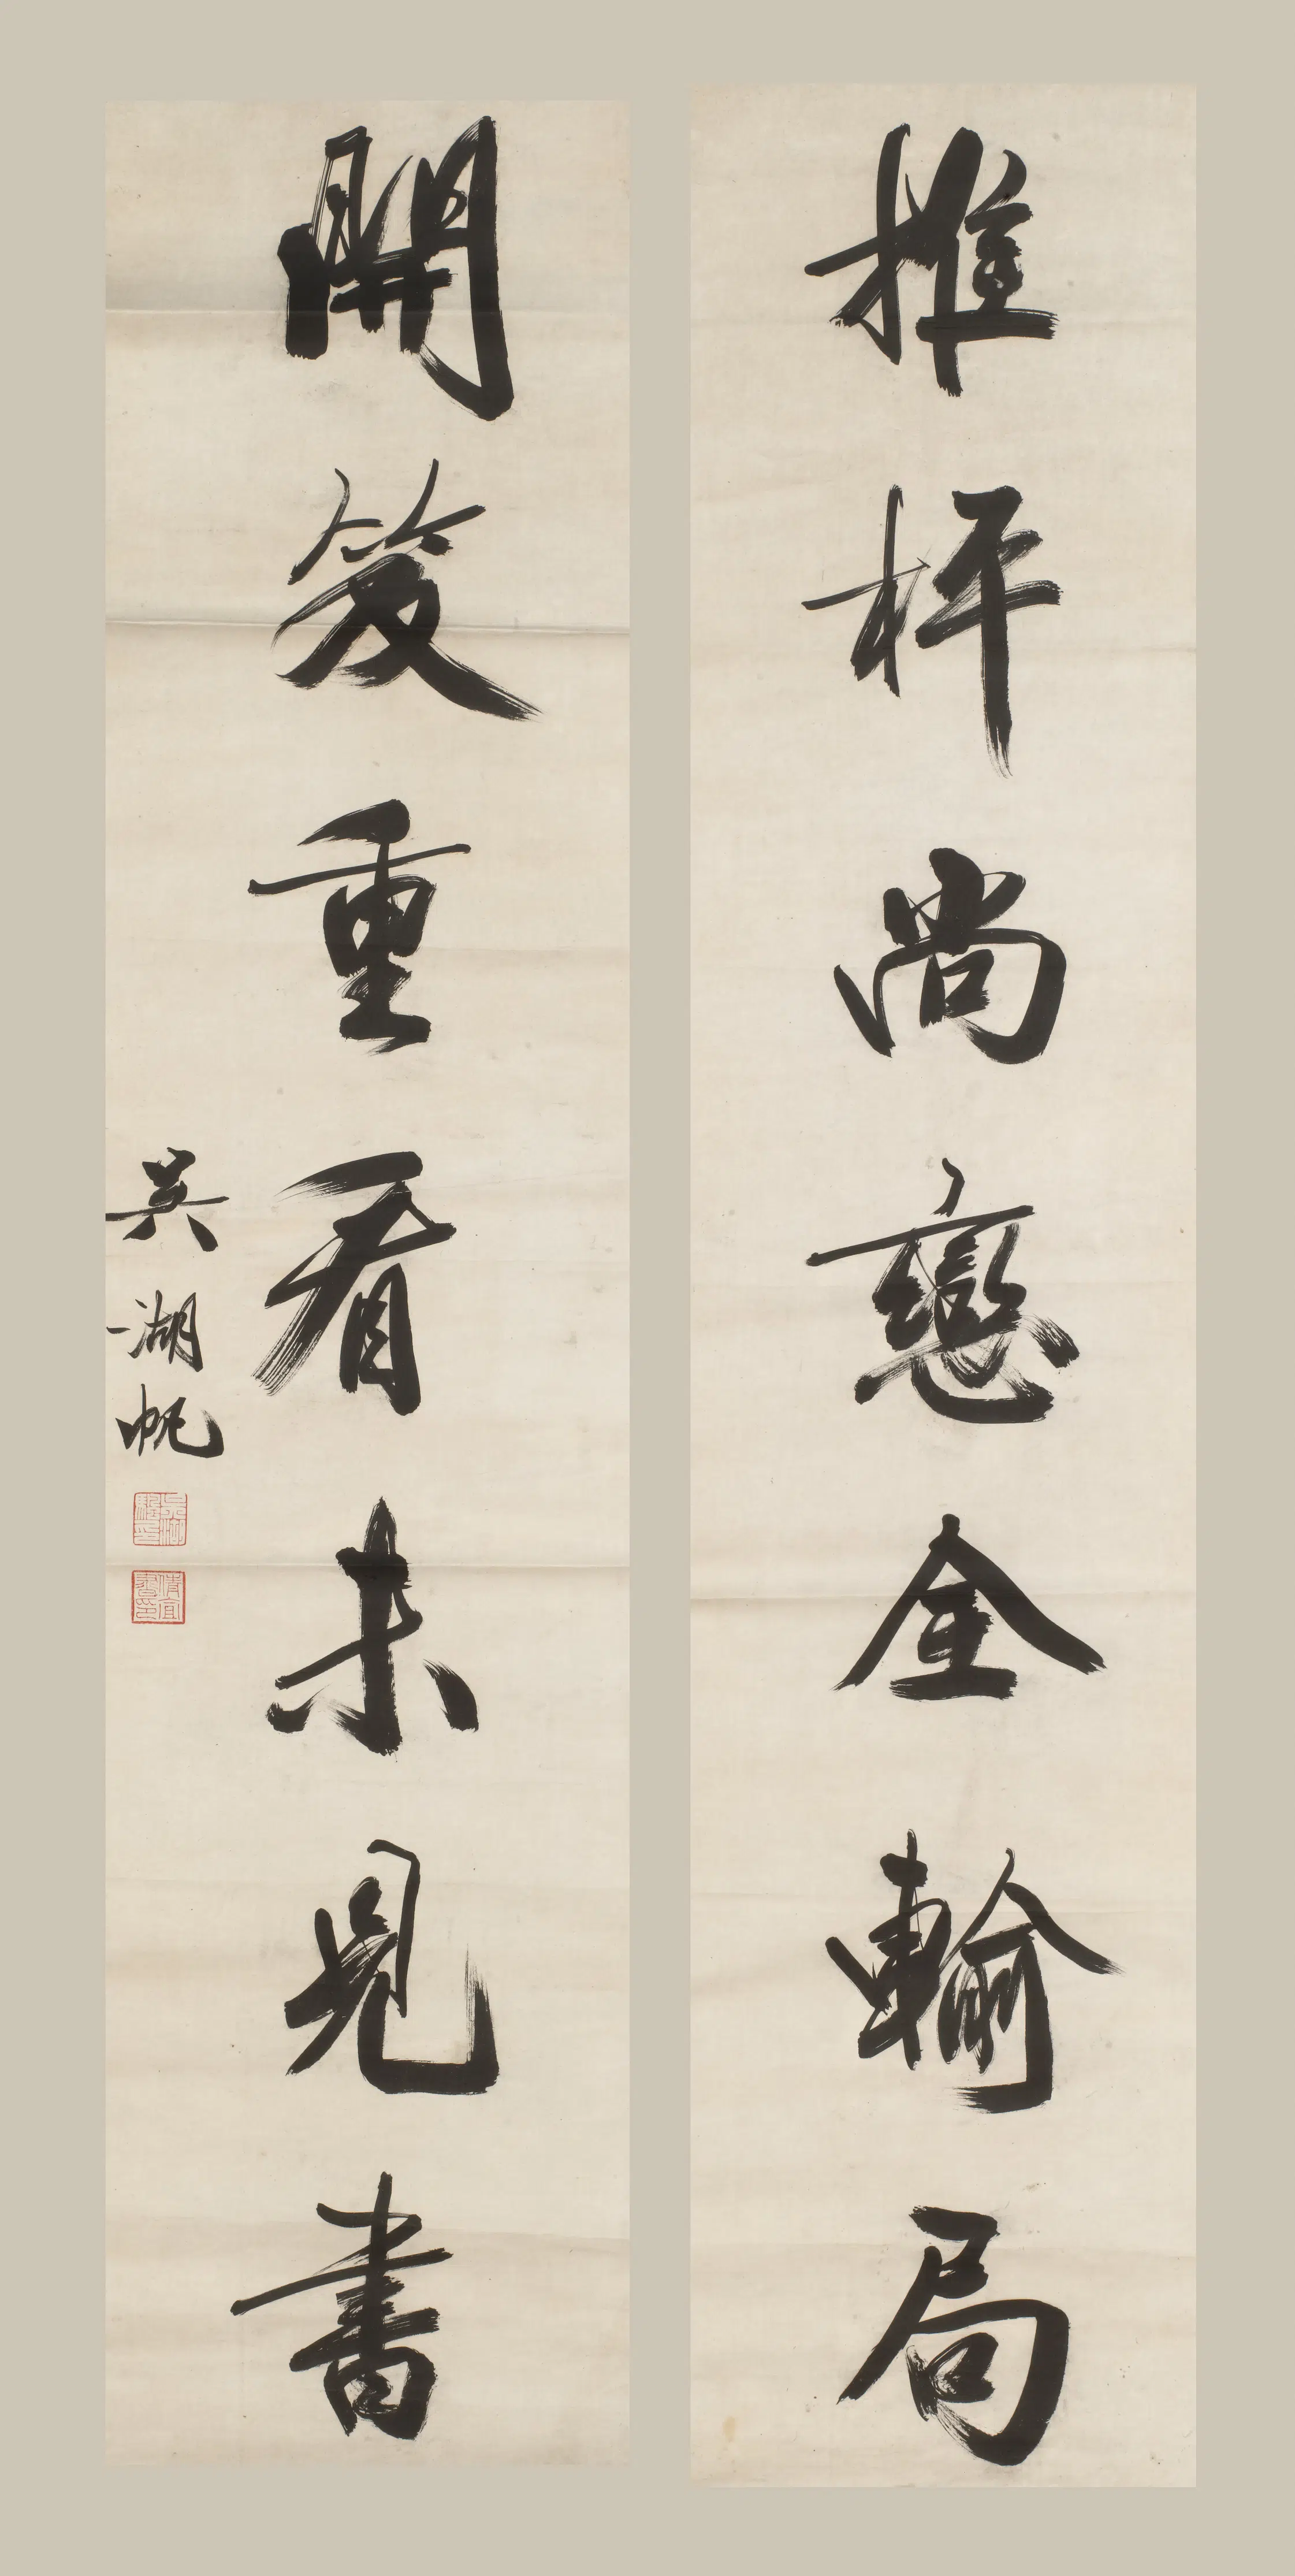 推枰尚戀全輸局
開笈重看未見書
吳湖帆
吳湖颿印
倩盦書印